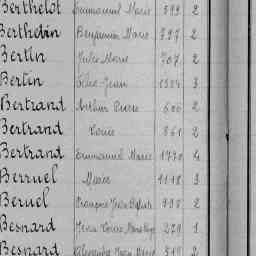 Berthelot Emmanuel Marie 599 2
Berthelin Benjamin Marie 727 2
Bertin Jules Marie 707 2
Bertin Félix Jean 1334 3
Bertrand Arthur Pierre 606 2
Bertrand Louis 861 2
Bertrand Emmanuel Marie 1770 4
Berruel Marie 1118 3
Beruel François Jean Baptiste 998 2
Besnard Jean Louis 279 1
Besnard Alexandre Jean Marie 515 2